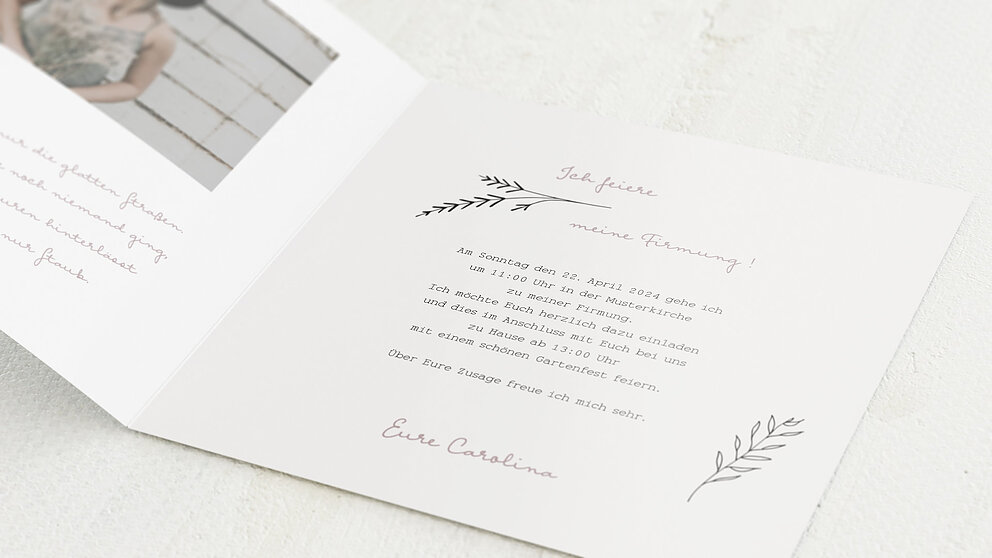 nur die glatten Straßen
noch niemand ging,
hinterlässt
nur Staub.
Ich feiere
meine Firmung !
Am Sonntag den 22. April 2024 gehe ich
um 11:00 Uhr in der Musterkirche
zu meiner Firmung.
Ich möchte Euch herzlich dazu einladen
und dies im Anschluss mit Euch bei uns
zu Hause ab 13:00 Uhr
mit einem schönen Gartenfest feiern.
Über Eure Zusage freue ich mich sehr.
Eure Carolina